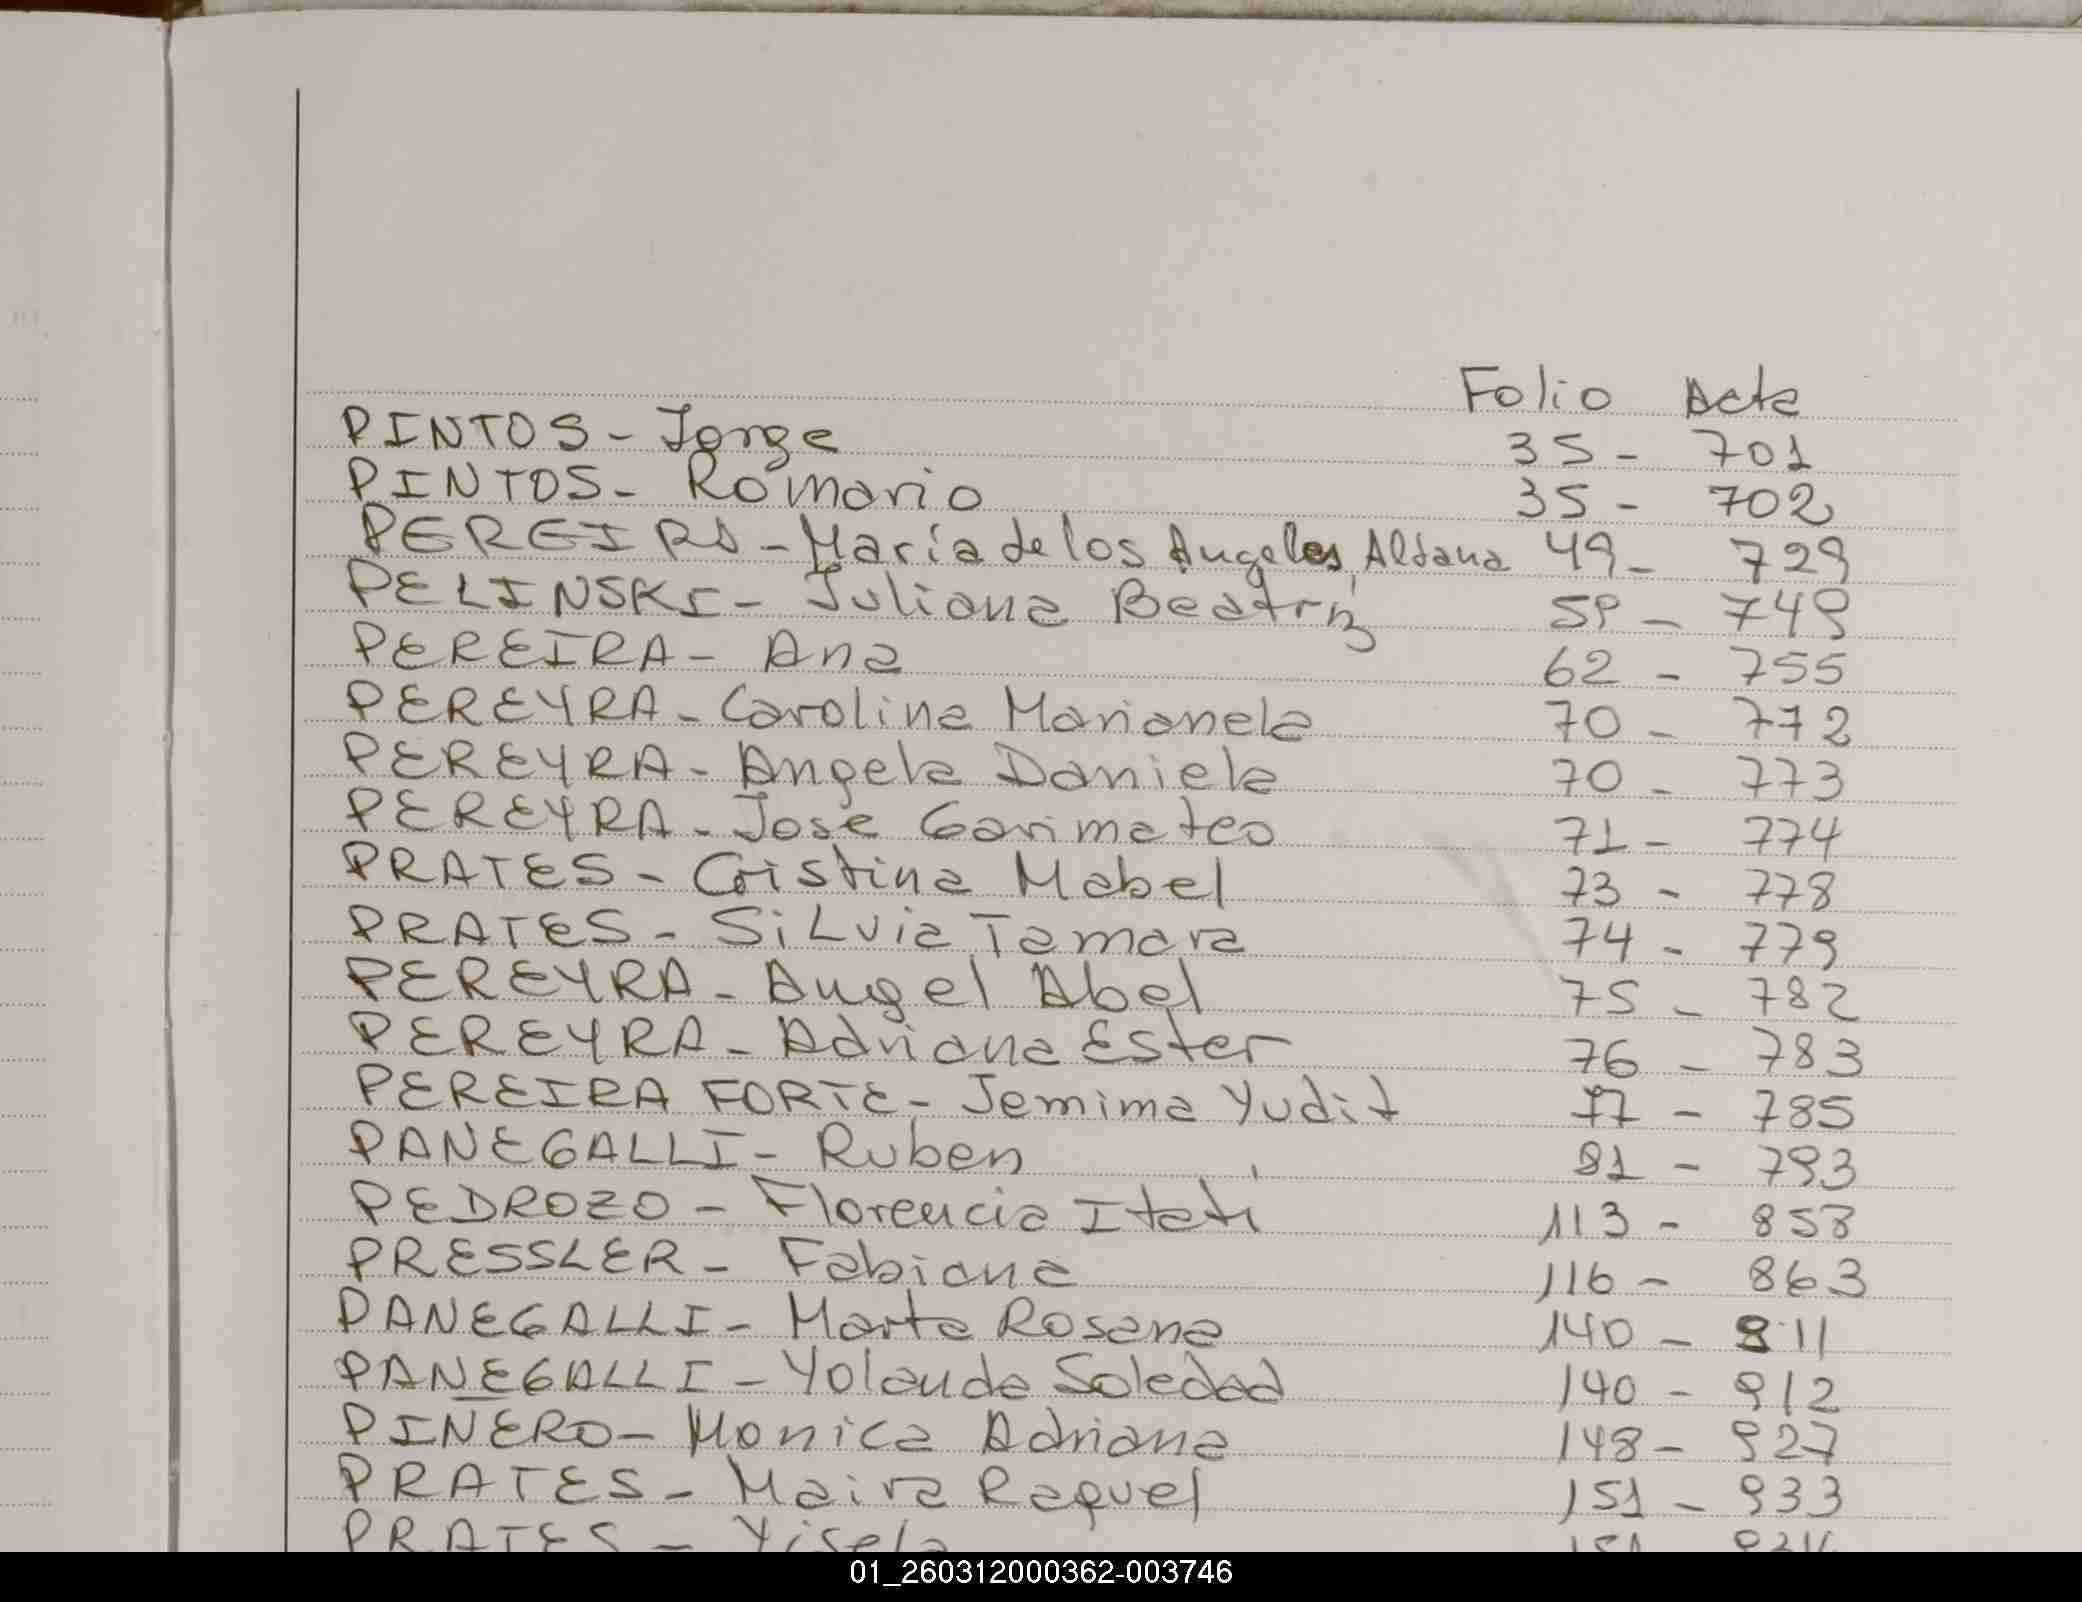 Folio Acta
PINTOS - Jorge 35 - 701
PINTOS - Romario 35 - 702
PEREIRA - María de los Angeles, Aldana 49 - 729
PELINSKI - Juliana Beatriz 59 - 749
PEREIRA - Ana 62 - 755
PEREYRA - Carolina Marianela 70 - 772
PEREYRA - Angela Daniela 70 - 773
PEREYRA - Jose Garimateo 71 - 774
PRATES - Cristina Mabel 73 - 778
PRATES - SiLvia Tamara 74 - 779
PEREYRA - Angel Abel 75 - 782
PEREYRA - Adriana Ester 76 - 783
PEREIRA FORTE - Jemima Yudit 77 - 785
PANEGALLI - Ruben 81 - 793
PEDROZO - Florencia Itatí 113 - 858
PRESSLER - Fabiana 116 - 863
PANEGALLI - Marta Rosana 140 - 911
PANEGALLI - Yolanda Soledad 140 - 912
PIÑERO - Monica Adriana 148 - 927
PRATES - Maira Raquel 151 - 933
PRATES - Yisela
01_260312000362-003746